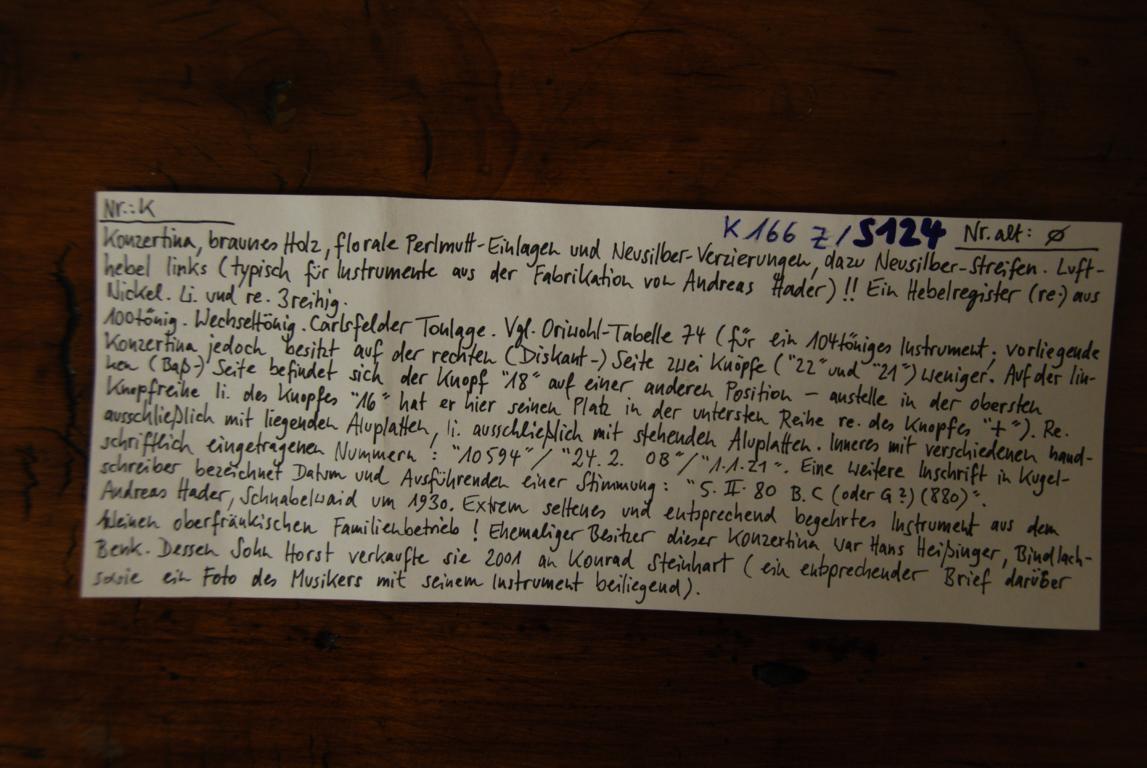 Nr.: K
K 166 Z / S124 Nr. alt: ø
Konzertina, braunes Holz, florale Perlmutt-Einlagen und Neusilber-Verzierungen, dazu Neusilber-Streifen. Luft-
hebel links (typisch für Instrumente aus der Fabrikation von Andreas Hader) !! Ein Hebelregister (re.) aus
Nickel. Li. und re. 3reihig.
100tönig. Wechseltönig. Carlsfelder Tonlage. Vgl. Oriwohl-Tabelle 74 (für ein 104töniges Instrument; vorliegende
Konzertina jedoch besitzt auf der rechten (Diskant-) Seite zwei Knöpfe ("22" und "21") weniger. Auf der lin-
ken (Baß-) Seite befindet sich der Knopf "18" auf einer anderen Position – anstelle in der obersten
Knopfreihe li. des Knopfes "16" hat er hier seinen Platz in der untersten Reihe re. des Knopfes "+"). Re.
ausschließlich mit liegenden Aluplatten, li. ausschließlich mit stehenden Aluplatten. Inneres mit verschiedenen hand-
schriftlich eingetragenen Nummern: "10594" / "24. 2. 08" / "1.1.21". Eine weitere Inschrift in Kugel-
schreiber bezeichnet Datum und Ausführenden einer Stimmung: "5. II. 80 B. C (oder G?) (880)".
Andreas Hader, Schnabelwaid um 1930. Extrem seltenes und entsprechend begehrtes Instrument aus dem
kleinen oberfränkischen Familienbetrieb! Ehemaliger Besitzer dieser Konzertina war Hans Heißinger, Bindlach-
Benk. Dessen Sohn Horst verkaufte sie 2001 an Konrad Steinhart (ein entsprechender Brief darüber
sowie ein Foto des Musikers mit seinem Instrument beiliegend).